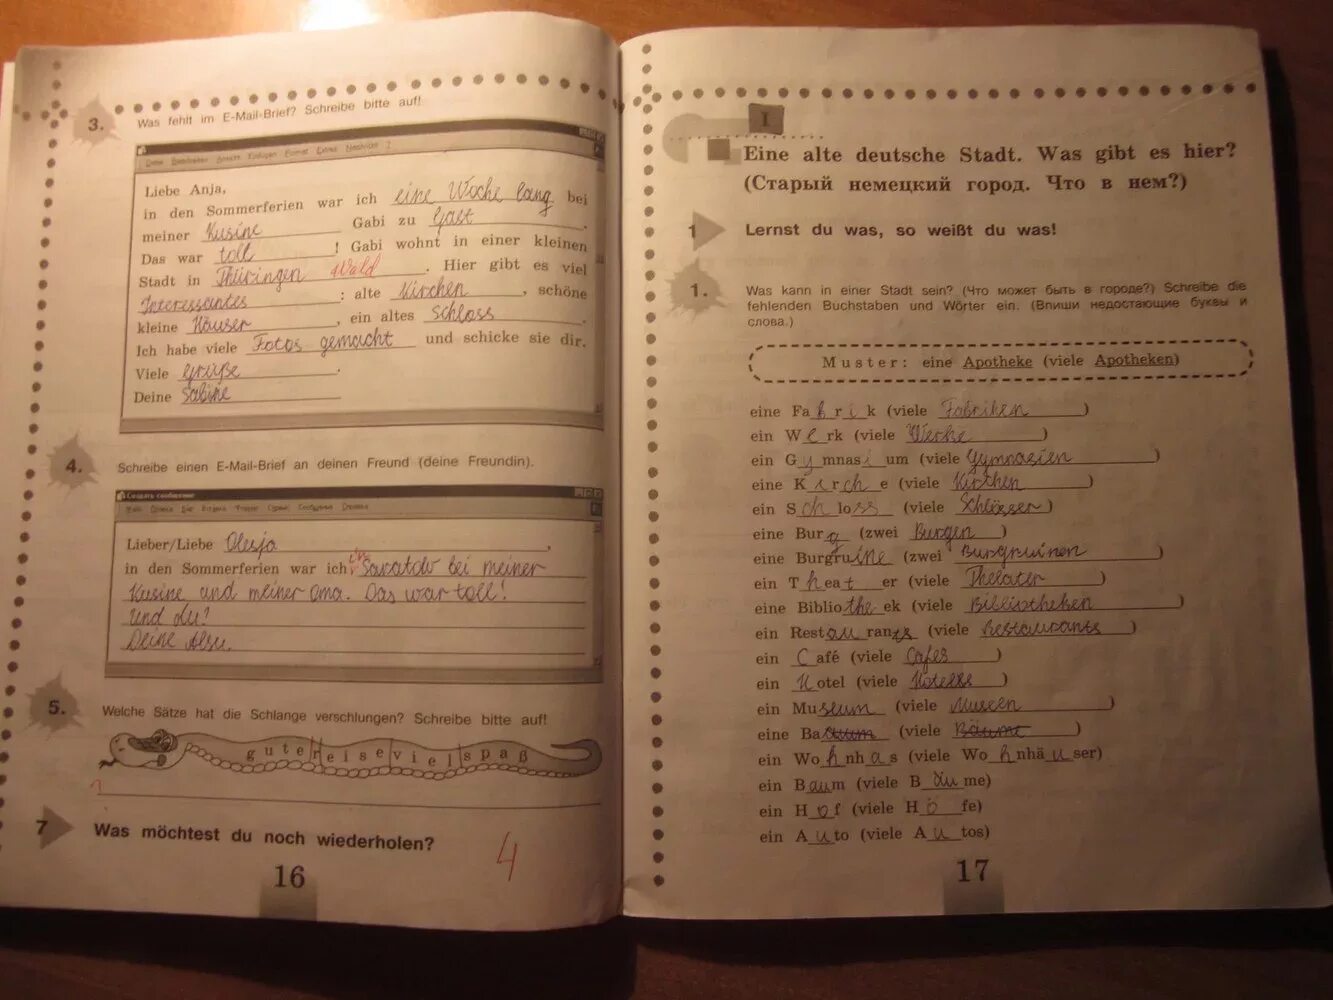 3.
Was fehlt im E-Mail-Brief? Schreibe bitte auf!
Liebe Anja,
in den Sommerferien war ich eine Woche lang bei
meiner Kusine Gabi zu Gast.
Das war toll! Gabi wohnt in einer kleinen
Stadt in Thüringen Wald. Hier gibt es viel
Interessantes: alte Kirchen, schöne
kleine Häuser, ein altes Schloss.
Ich habe viele Fotos gemacht und schicke sie dir.
Viele Grüße.
Deine Sabine
4.
Schreibe einen E-Mail-Brief an deinen Freund (deine Freundin).
Создать сообщение
Lieber/Liebe Olesja,
in den Sommerferien war ich in Saratow bei meiner
Kusine und meiner Oma. Das war toll!
Und du?
Deine Alsu.
5.
Welche Sätze hat die Schlange verschlungen? Schreibe bitte auf!
gute|reise|viel|spaß
?
7 Was möchtest du noch wiederholen?
4
16
I
Eine alte deutsche Stadt. Was gibt es hier?
(Старый немецкий город. Что в нем?)
1 Lernst du was, so weißt du was!
1.
Was kann in einer Stadt sein? (Что может быть в городе?) Schreibe die
fehlenden Buchstaben und Wörter ein. (Впиши недостающие буквы и
слова.)
Muster: eine Apotheke (viele Apotheken)
eine Fabrik (viele Fabriken)
ein Werk (viele Werke)
ein Gymnasium (viele Gymnasien)
eine Kirche (viele Kirchen)
ein Schloss (viele Schlösser)
eine Burg (zwei Burgen)
eine Burgruine (zwei Burgruinen)
ein Theater (viele Theater)
eine Bibliothek (viele Bibliotheken)
ein Restaurants (viele Restaurants)
ein Café (viele Cafes)
ein Hotel (viele Hotells)
ein Museum (viele Museen)
eine Baauum (viele Bäume)
ein Wohnhas (viele Wohnhäuser)
ein Baum (viele Bäume)
ein Hof (viele Höfe)
ein Auto (viele Autos)
17